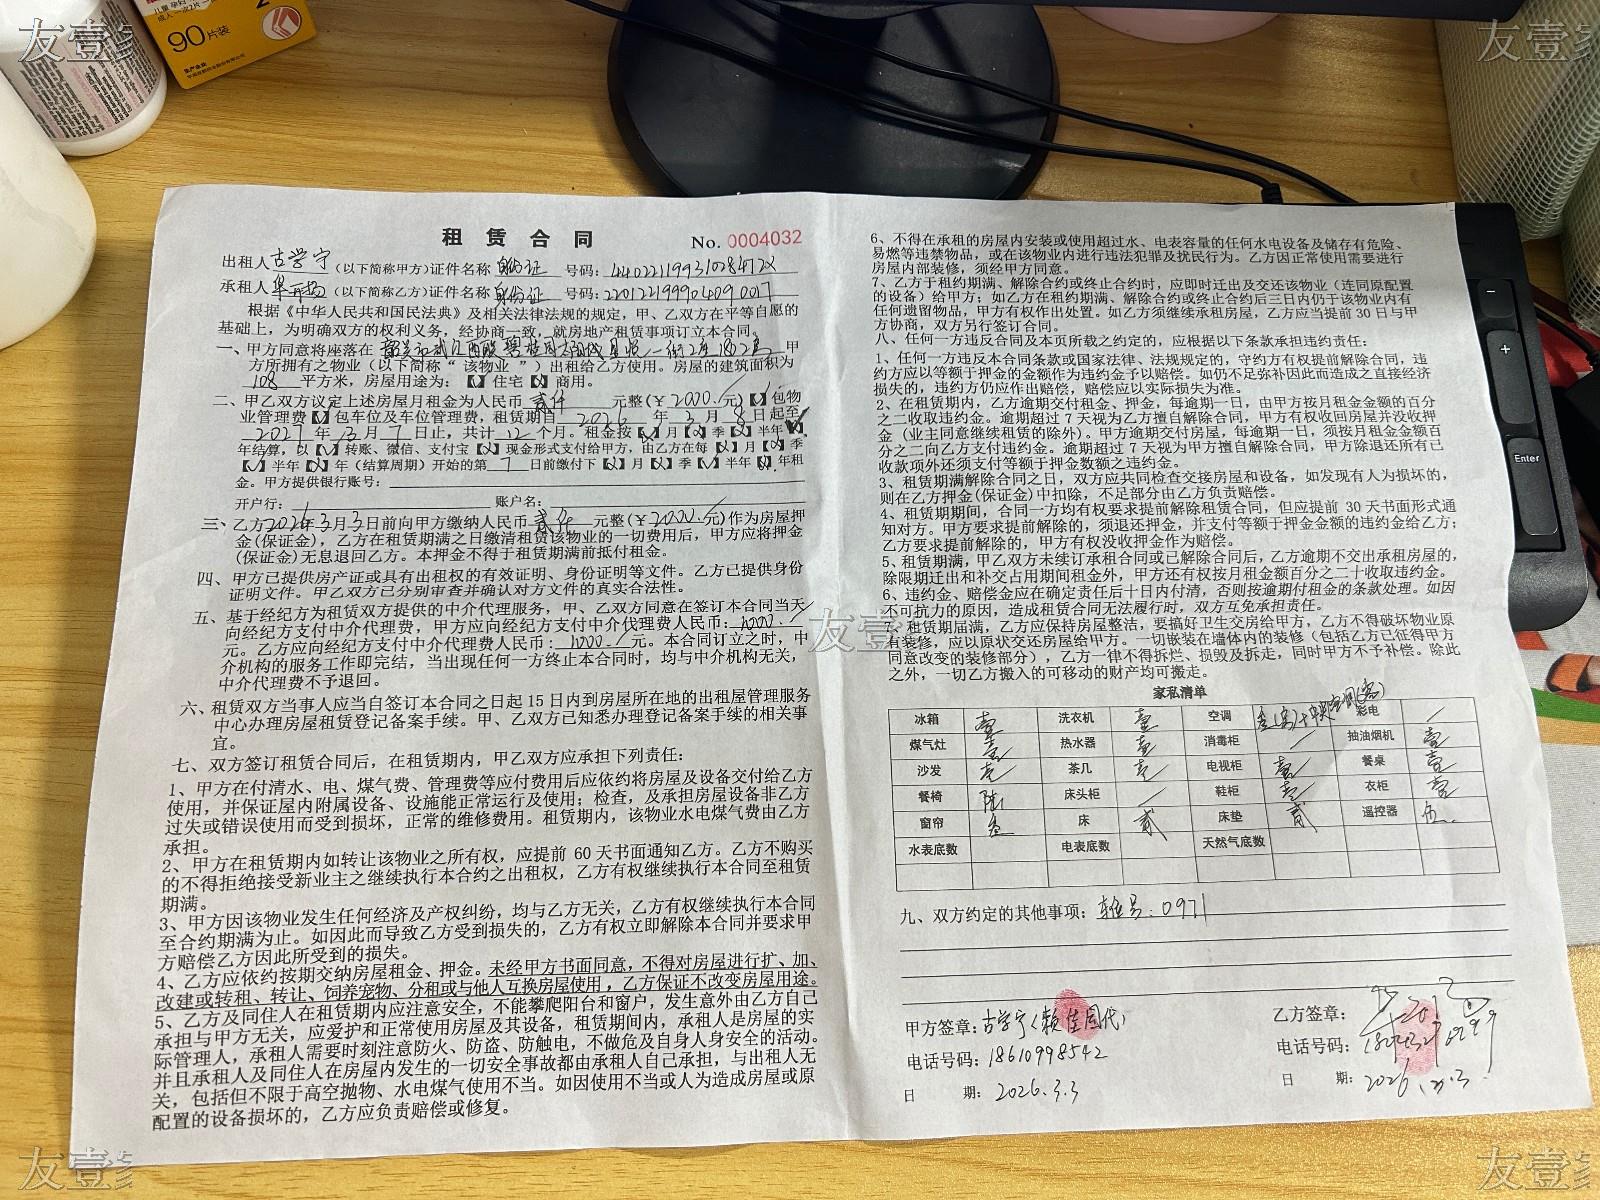 友壹家
友壹家
90片装
Enter
租 赁 合 同
No. 0004032
出租人古学宁(以下简称甲方)证件名称身份证 号码:44022119931028472X
承租人 (以下简称乙方)证件名称身份证 号码:220122199904090017
根据《中华人民共和国民法典》及相关法律法规的规定，甲、乙双方在平等自愿的
基础上，为明确双方的权利义务，经协商一致，就房地产租赁事项订立本合同。
一、甲方同意将座落在 韶关市武江西联碧桂园 一街2座1802房 甲
方所拥有之物业（以下简称“该物业”）出租给乙方使用。房屋的建筑面积为
108 平方米，房屋用途为：【√】住宅【 】商用。
二、甲乙双方议定上述房屋月租金为人民币 贰仟 元整(￥2000.元)【 】包物
业管理费【 】包车位及车位管理费，租赁期自 2026 年 3 月 8 日起至
2027 年 3 月 7 日止，共计 12 个月。租金按【 】月【 】季【 】半年【 】
年结算，以【 】转账、微信、支付宝【 】现金形式支付给甲方，由乙方在每【 】月【 】季
【 】半年【 】年（结算周期）开始的第 7 日前缴付下【 】月【 】季【 】半年【 】年租
金。甲方提供银行账号：
开户行： 账户名：
三、乙方2026年3月3日前向甲方缴纳人民币 贰仟 元整(￥2000.元)作为房屋押
金(保证金)，乙方在租赁期满之日缴清租赁该物业的一切费用后，甲方应将押金
(保证金)无息退回乙方。本押金不得于租赁期满前抵付租金。
四、甲方已提供房产证或具有出租权的有效证明、身份证明等文件。乙方已提供身份
证明文件。甲乙双方已分别审查并确认对方文件的真实合法性。
五、基于经纪方为租赁双方提供的中介代理服务，甲、乙双方同意在签订本合同当天
向经纪方支付中介代理费，甲方应向经纪方支付中介代理费人民币：1000.
元。乙方应向经纪方支付中介代理费人民币：1000.元。本合同订立之时，中
介机构的服务工作即完结，当出现任何一方终止本合同时，均与中介机构无关，
中介代理费不予退回。
六、租赁双方当事人应当自签订本合同之日起 15 日内到房屋所在地的出租屋管理服务
中心办理房屋租赁登记备案手续。甲、乙双方已知悉办理登记备案手续的相关事
宜。
七、双方签订租赁合同后，在租赁期内，甲乙双方应承担下列责任：
1、甲方在付清水、电、煤气费、管理费等应付费用后应依约将房屋及设备交付给乙方
使用，并保证屋内附属设备、设施能正常运行及使用；检查，及承担房屋设备非乙方
过失或错误使用而受到损坏，正常的维修费用。租赁期内，该物业水电煤气费由乙方
承担。
2、甲方在租赁期内如转让该物业之所有权，应提前 60 天书面通知乙方。乙方不购买
的不得拒绝接受新业主之继续执行本合约之出租权，乙方有权继续执行本合同至租赁
期满。
3、甲方因该物业发生任何经济及产权纠纷，均与乙方无关，乙方有权继续执行本合同
至合约期满为止。如因此而导致乙方受到损失的，乙方有权立即解除本合同并要求甲
方赔偿乙方因此所受到的损失。
4、乙方应依约按期交纳房屋租金、押金。未经甲方书面同意，不得对房屋进行扩、加、
改建或转租、转让、饲养宠物、分租或与他人互换房屋使用，乙方保证不改变房屋用途。
5、乙方及同住人在租赁期内应注意安全，不能攀爬阳台和窗户，发生意外由乙方自己
承担与甲方无关，应爱护和正常使用房屋及其设备，租赁期间内，承租人是房屋的实
际管理人，承租人需要时刻注意防火、防盗、防触电，不做危及自身人身安全的活动。
并且承租人及同住人在房屋内发生的一切安全事故都由承租人自己承担，与出租人无
关，包括但不限于高空抛物、水电煤气使用不当。如因使用不当或人为造成房屋或原
配置的设备损坏的，乙方应负责赔偿或修复。
6、不得在承租的房屋内安装或使用超过水、电表容量的任何水电设备及储存有危险、
易燃等违禁物品，或在该物业内进行违法犯罪及扰民行为。乙方因正常使用需要进行
房屋内部装修，须经甲方同意。
7、乙方于租约期满、解除合约或终止合约时，应即时迁出及交还该物业（连同原配置
的设备）给甲方；如乙方在租约期满、解除合约或终止合约后三日内仍于该物业内有
任何遗留物品，甲方有权作出处置。如乙方须继续承租房屋，乙方应当提前 30 日与甲
方协商，双方另行签订合同。
八、任何一方违反合同及本页所载之约定的，应根据以下条款承担违约责任：
1、任何一方违反本合同条款或国家法律、法规规定的，守约方有权提前解除合同，违
约方应以等额于押金的金额作为违约金予以赔偿。如仍不足弥补因此而造成之直接经济
损失的，违约方仍应作出赔偿，赔偿应以实际损失为准。
2、在租赁期内，乙方逾期交付租金、押金，每逾期一日，由甲方按月租金金额的百分
之二收取违约金。逾期超过 7 天视为乙方擅自解除合同，甲方有权收回房屋并没收押
金（业主同意继续租赁的除外）。甲方逾期交付房屋，每逾期一日，须按月租金金额百
分之二向乙方支付违约金。逾期超过 7 天视为甲方擅自解除合同，甲方除退还所有已
收款项外还须支付等额于押金数额之违约金。
3、租赁期满解除合同之日，双方应共同检查交接房屋和设备，如发现有人为损坏的，
则在乙方押金(保证金)中扣除，不足部分由乙方负责赔偿。
4、租赁期期间，合同一方均有权要求提前解除租赁合同，但应提前 30 天书面形式通
知对方。甲方要求提前解除的，须退还押金，并支付等额于押金金额的违约金给乙方；
乙方要求提前解除的，甲方有权没收押金作为赔偿。
5、租赁期满，甲乙双方未续订承租合同或已解除合同后，乙方逾期不交出承租房屋的，
除限期迁出和补交占用期间租金外，甲方还有权按月租金额百分之二十收取违约金。
6、违约金、赔偿金应在确定责任后十日内付清，否则按逾期付租金的条款处理。如因
不可抗力的原因，造成租赁合同无法履行时，双方互免承担责任。
7、租赁期届满，乙方应保持房屋整洁，要搞好卫生交房给甲方，乙方不得破坏物业原
有装修，应以原状交还房屋给甲方。一切嵌装在墙体内的装修（包括乙方已征得甲方
同意改变的装修部分），乙方一律不得拆烂、损毁及拆走，同时甲方不予补偿。除此
之外，一切乙方搬入的可移动的财产均可搬走。
友壹家
家私清单
冰箱 壹 洗衣机 壹 空调 彩电
煤气灶 壹 热水器 壹 消毒柜 抽油烟机 壹
沙发 壹 茶几 壹 电视柜 壹 餐桌 壹
餐椅 陆 床头柜 鞋柜 壹 衣柜 壹
窗帘 叁 床 贰 床垫 贰 遥控器 伍
水表底数 电表底数 天然气底数
九、双方约定的其他事项： 0971
甲方签章：古学宁(赖佳园代)
电话号码：18610998542
日 期：2026.3.3
乙方签章：
电话号码：
日 期：2026.3.3
友壹家
友壹家